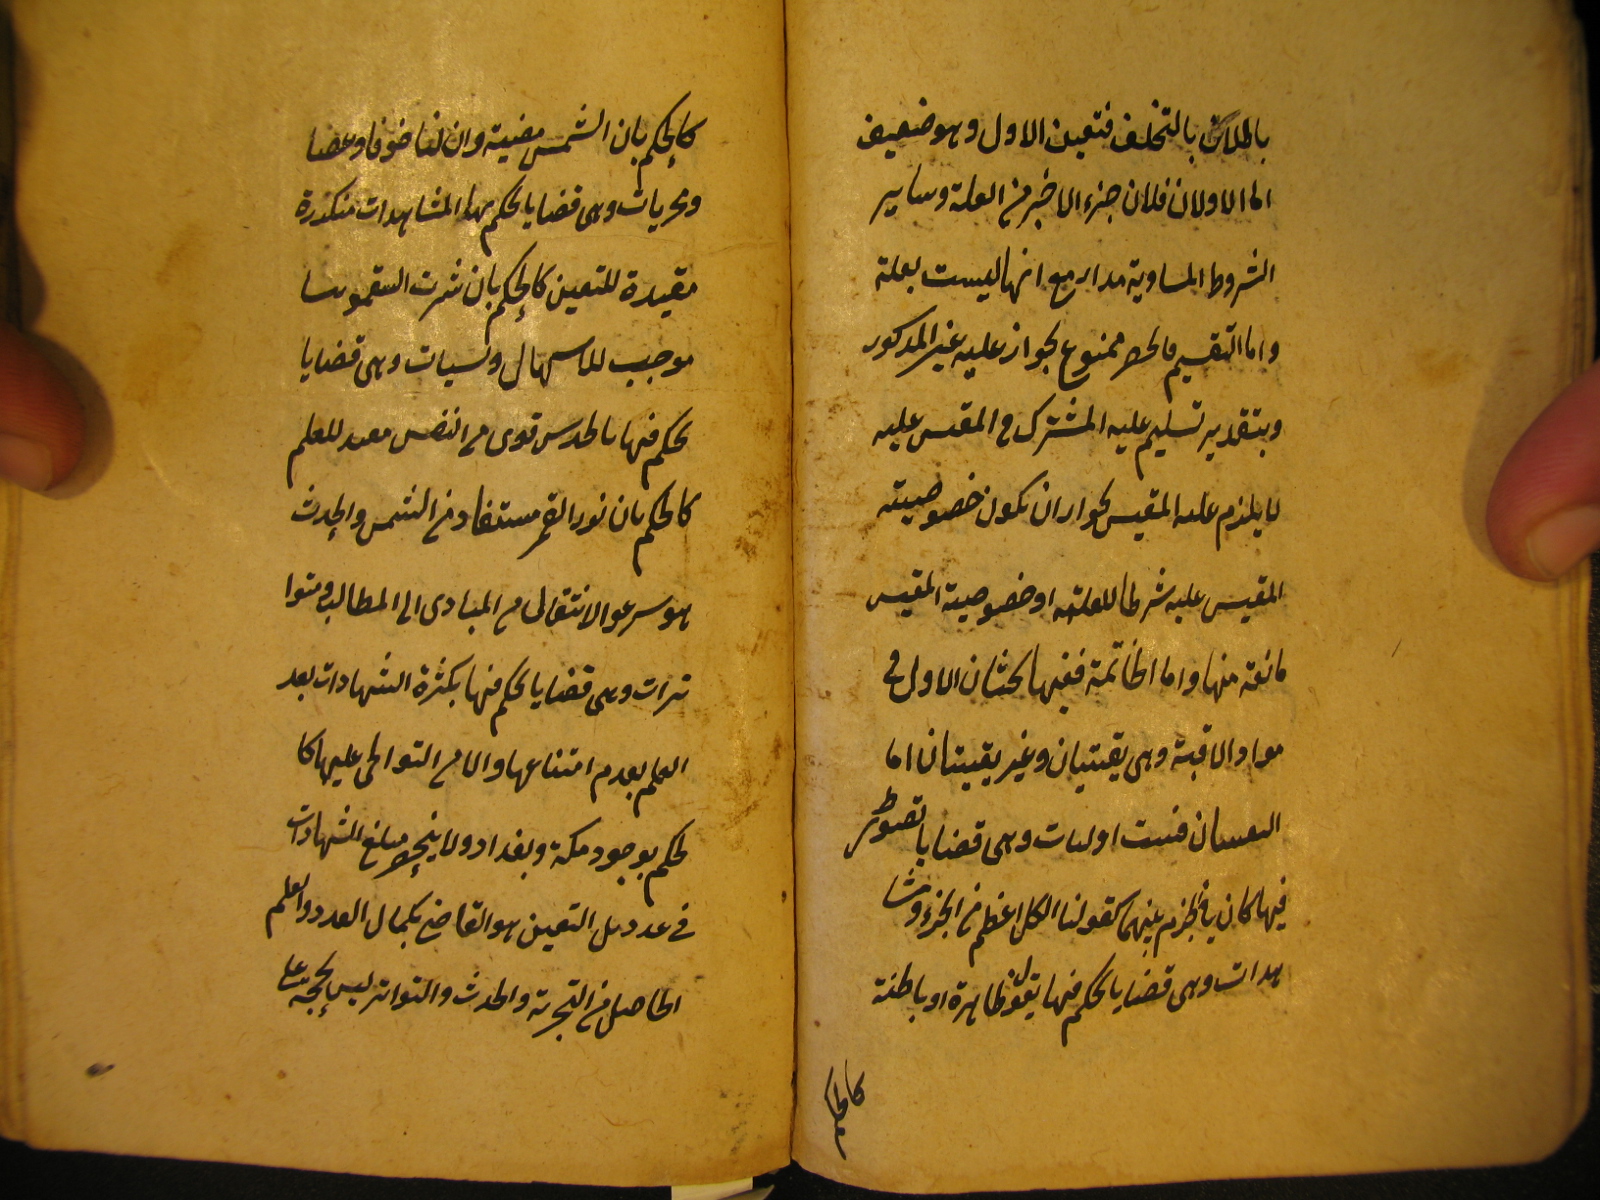 بالتخلف فتعين الاول وهو ضعيف
اما الاولان فلان جزء الاخير من العلة وساير
الشروط المساوية مدار مع انها ليست بعلة
واما التقسيم فالحصر ممنوع لجواز علية غير المذكور
وبتقدير تسليم علية المشترك في المقيس عليه
لا يلزم علية المقيس لجواز ان يكون خصوصيته
المقيس عليه شرطا للعلية او خصوصية المقيس
مانعة منها واما الخاتمة ففيها بحثان الاول في
مواد الاقيسة وهي يقينيان وغير يقينيان اما
اليقينيان فست اوليات وهي قضايا تصور
فيها كان في الجزم بينهما كقولنا الكل اعظم من الجزء ومشا
هدات وهي قضايا يحكم فيها بقوى ظاهرة او باطنة
كالحكم
كالحكم بان الشمس مضيئة وان لنا خوفا وغضبا
ومجربات وهي قضايا يحكم بها لمشاهدات متكررة
مفيدة لليقين كالحكم بان شرب السقمونيا
موجب للاسهال وحدسيات وهي قضايا
يحكم فيها بالحدس قوى من النفس مفيد للعلم
كالحكم بان نور القمر مستفاد من الشمس والحدث
هو سرعة الانتقال من المبادى الى المطالب ومتوا
ترات وهي قضايا يحكم فيها بكثرة الشهادات بعد
العلم بعدم امتناعها والامن التواطى عليها كا
لحكم بوجود مكة وبغداد ولا ينحصر مبلغ الشهادات
في عدد بل اليقين هو القاضى بكمال العدد والعلم
الحاصل من التجربة والحدث والتواتر ليس بحجة على